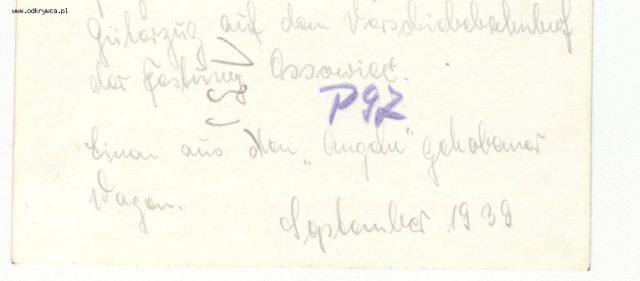 www.odkrywca.pl
Güterzug auf dem Verschiebebahnhof
der Festung Ossowiec.
P97
Einer aus den „Angeln" gehobener
Wagen.
September 1939